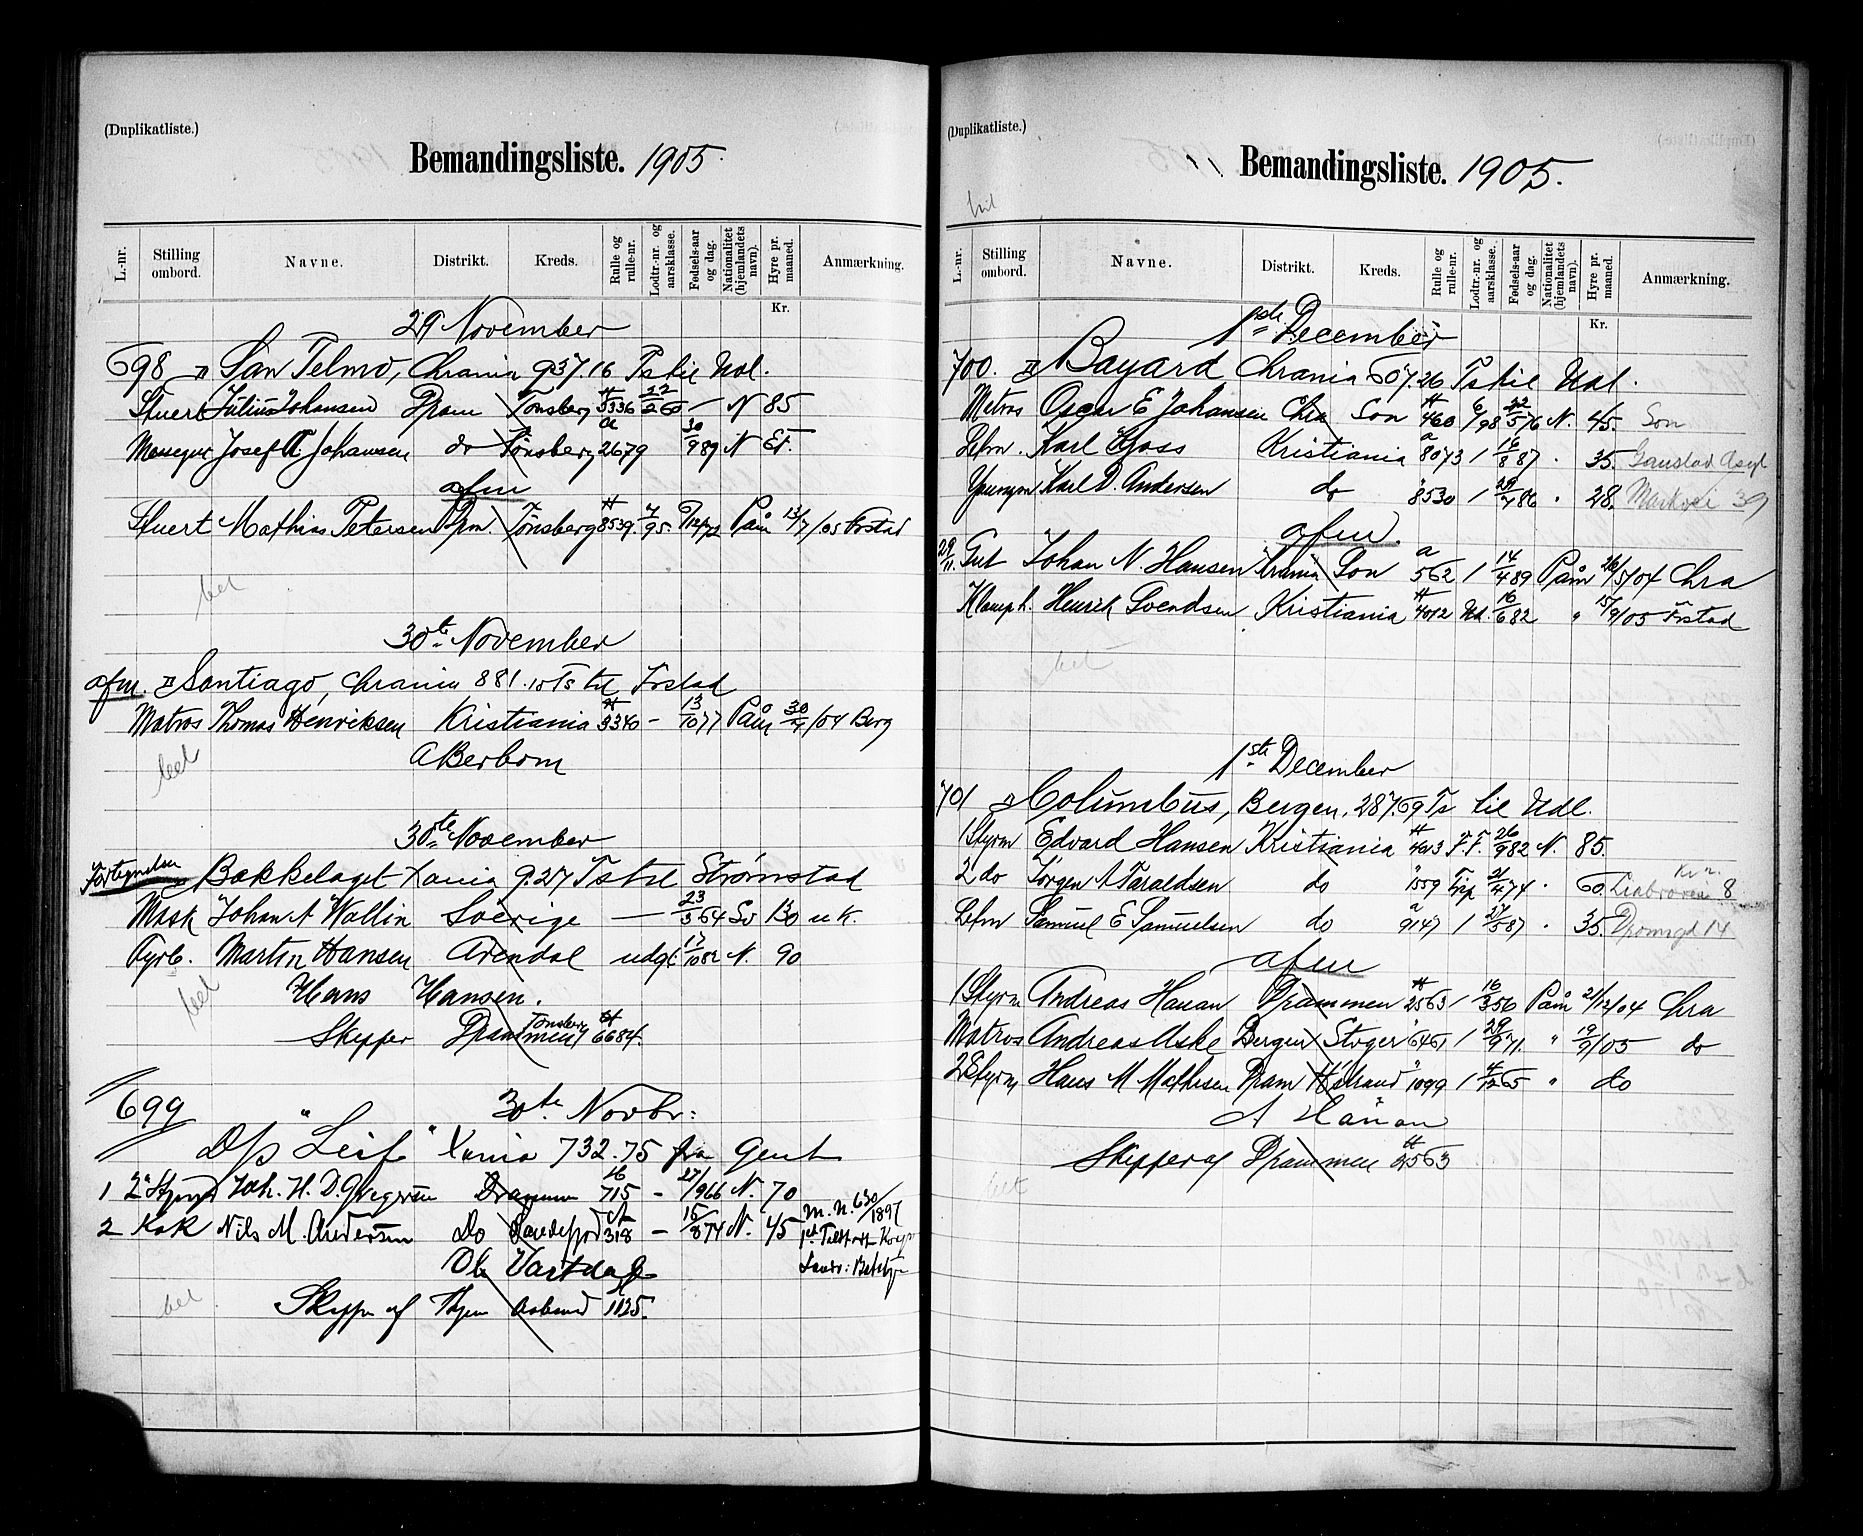 (Duplikatliste.)
Bemandingsliste. 1905.
L.-nr. Stilling ombord. Navne. Distrikt. Kreds. Rulle og rulle-nr. Lodtr.-nr. og aarsklasse. Fødsels-aar og dag. Nationalitet (hjemlandets navn). Hyre pr. maaned. Anmærkning.
Kr.
29 November
698 San Telmo, Chrania 937.16 Ts til Udl.
Stuert Julius Johansen Dram Tønsberg 5336 22/2 60 — N 85
Messegut Josef A Johansen do Tønsberg 2679 30/9 89 N Et.
afm
Stuert Mathias Petersen Drm. Tønsberg 8539. 4/95. 6/12 72 Påm 13/7/05 Frstad
bet
30te November
afm. Santiago, Chrania 881.10 Ts til Frstad
Matros Thomas Henriksen Kristiania 3340 — 13/10 77 Påm 30/4/04 Berg
bet A Berbom
30te November
Fortegnelse Bækkelaget Xania 9.27 Ts til Strømstad
Mask Johan A Wallin Sverige — 23/3 64 Sv 130 u K.
Fyrb. Martin Hansen Arendal udgt. 17/10 82 N. 90
bet Hans Hansen.
Skipper Drammen Tønsberg 6684.
699 30te Novbr:
D/s "Leif" Xania 732.75 fra Gent
1 2 Styrm Joh. H. D. Gregersen Drammen 715 — 27/9 66 N. 70
2 Kok Nils M. Andersen Do Sandefjord 318 — 15/8 74 N. 45 M. N. 630/1897
Ole Vartdal
bet Skipper af Thjem Aalesund 1125.
(Duplikatliste.)
Bemandingsliste. 1905.
bet
L.-nr. Stilling ombord. Navne. Distrikt. Kreds. Rulle og rulle-nr. Lodtr.-nr. og aarsklasse. Fødsels-aar og dag. Nationalitet (hjemlandets navn). Hyre pr. maaned. Anmærkning.
Kr.
1ste December
700. Bayard Chrania 607.26 Ts til Udl.
Matros Oscar E Johansen Chra Son 460 6/98 22/5 76 N. 45. Son
Letm. Karl Gjøss Kristiania 8073 1 16/8 87 " 35. Gaustad Asyl
Youngm Karl D. Andersen do 8530 1 29/4 86 " 28. Markvei 39
afm.
29/11 Gut Johan N. Hansen Krania Son 562 1 14/4 89 Påm 26/5/04 Chra
K Comp h. Henrik Svendsen Kristiania 4012 Ud. 16/6 82 " 15/9/05 Frstad
bet
1ste December
701 Columbus, Bergen, 287.69 Ts til Udl.
1 Styrm Edvard Hansen Kristiania 4613 F.F. 26/9 82 N. 85.
2 do Jørgen A Taraldsen do 1559 Frip 21/4 74 " 60. 8
Letm Samuel E Samuelsen do 9147 1 27/5 87 " 35. Dronngd 14
afm
1 Styrm Andreas Hanan Drammen 2563 1 16/3 56 Påm 21/12/04 Chra
Matros Andreas Aske Bergen Stvger 6461 1 29/9 71. " 19/9/05 do
2 Styrm Hans M Mathisen Dram Hstrand 1099 1 4/12 65 " do
A Hanan
Skipper af Drammen 2563
bet